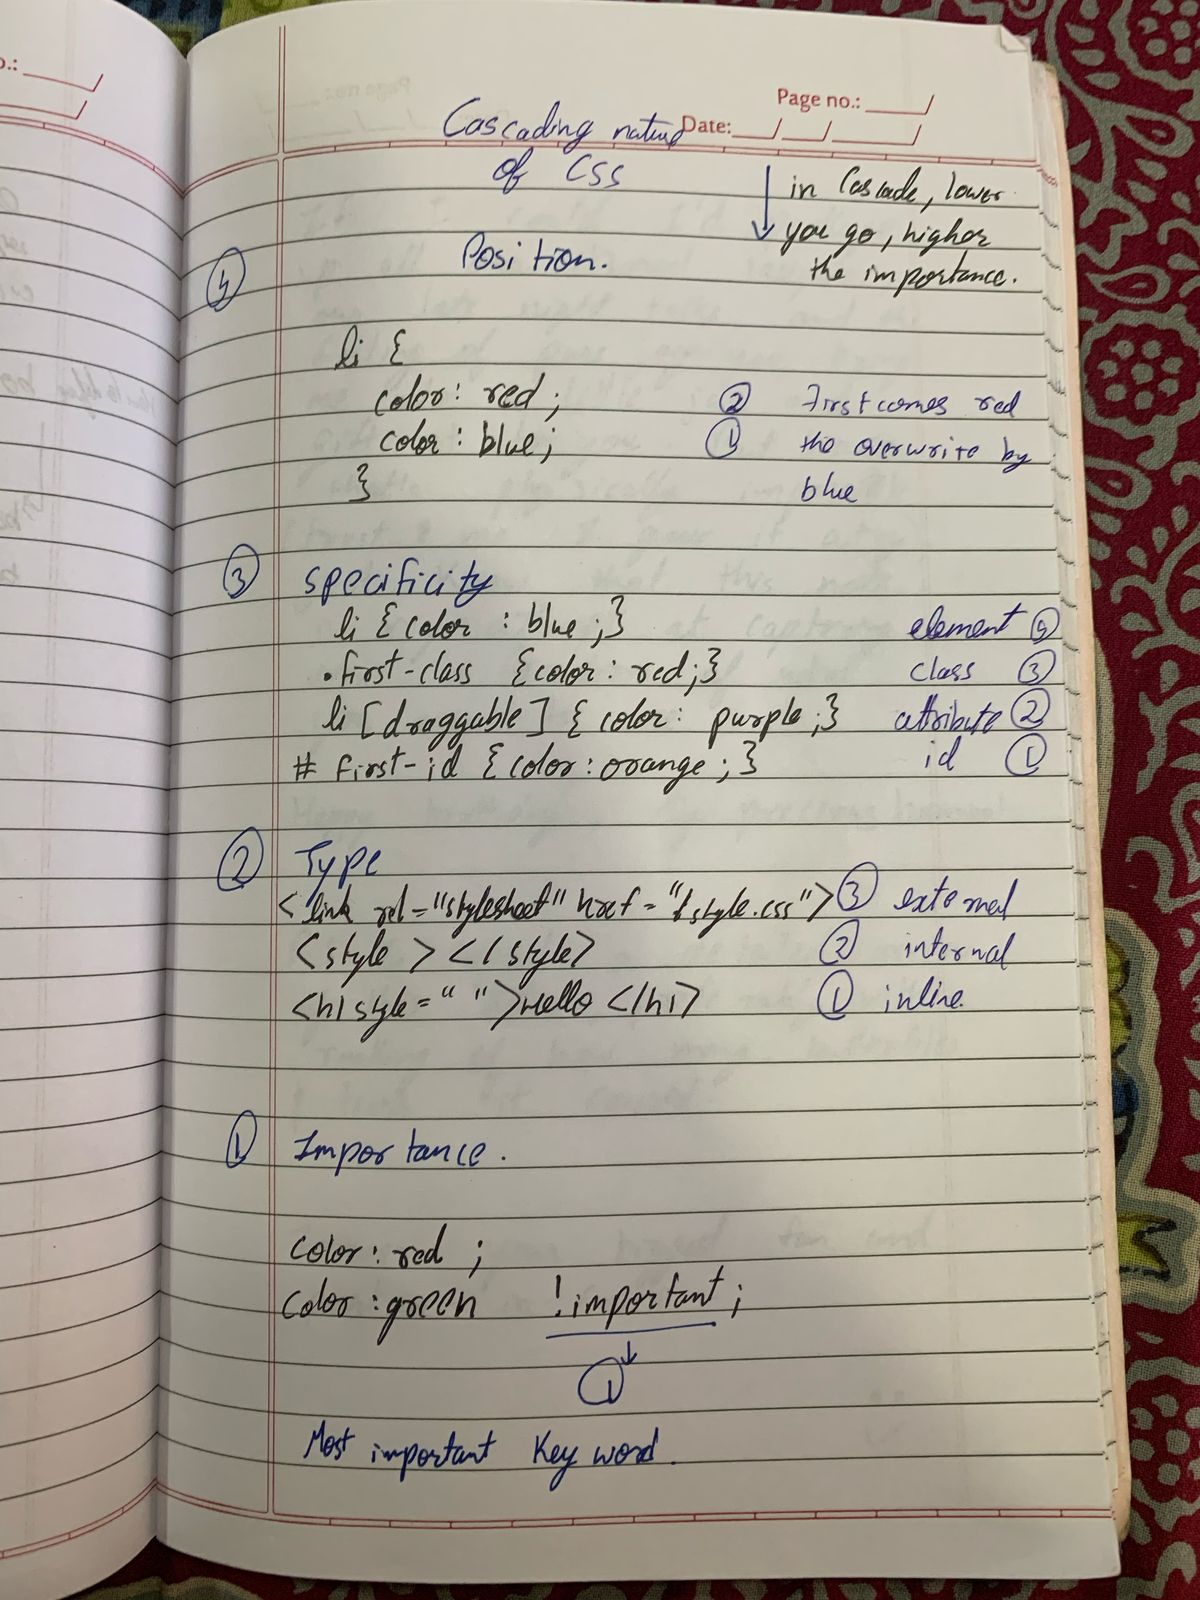 o.:
Page no.:
Date:
Cascading nature
of CSS
in Cascade, lower
you go, higher
the importance.
④ Position.
li {
color: red; ② First comes red
color: blue; ① the overwrite by
} blue
③ specificity
li { color : blue ;} element ④
.first-class {color: red;} class ③
li [draggable] { color: purple ;} attribute ②
# first-id {color:orange ;} id ①
② Type
<link rel="stylesheet" href="style.css"> ③ external
<style > </style> ② internal
<h1 style=" ">Hello </h1> ① inline.
① Importance.
color: red ;
color :green !important;
①
Most important Key word.